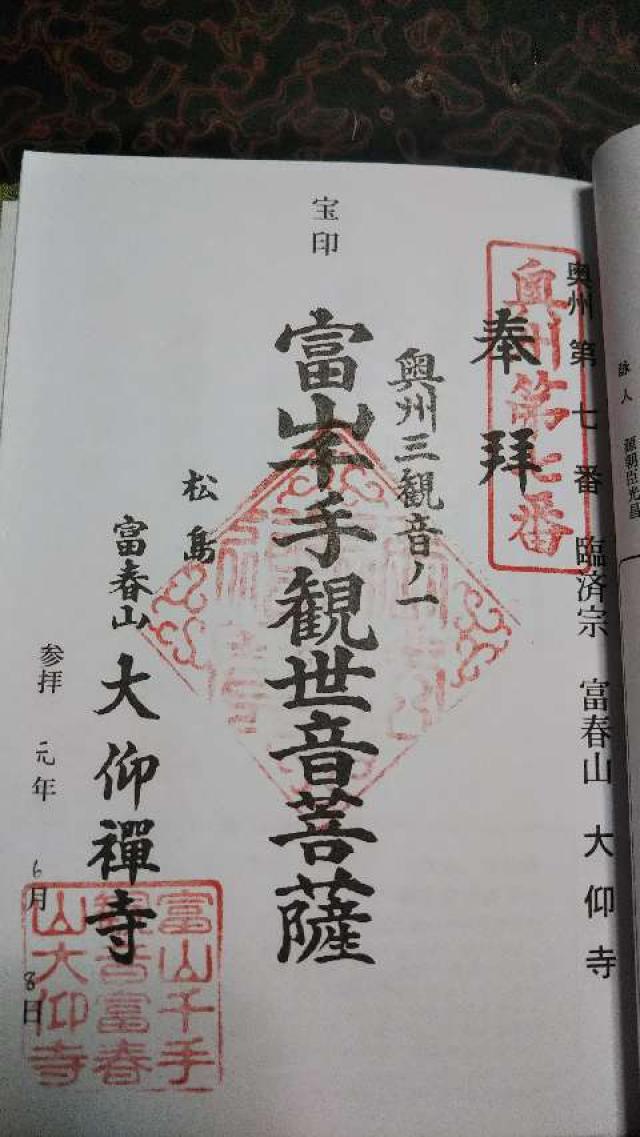 詠人 源朝臣光昌
奥州第七番 臨済宗 富春山 大仰寺
奥州第七番
奉拝
奥州三観音ノ一
宝印
富山千手観世音菩薩
松島
富春山 大仰禅寺
富山千手
観音富春
山大仰寺
参拝 元年 6月 8日